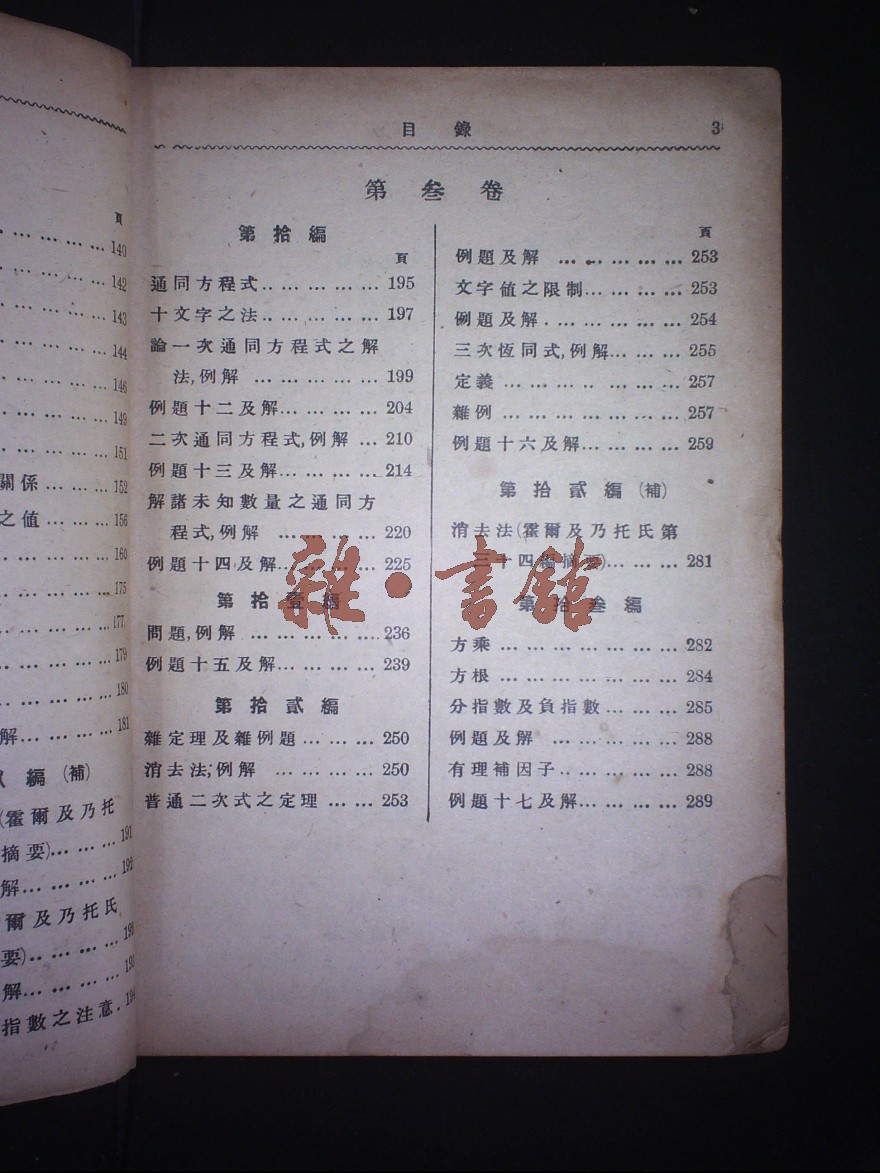 頁
… … … … … 140
… … … … … 142
… … … … … 143
… … … … … 144
… … … … … 146
… … … … … 149
… … … … … 151
關係 … … … 152
之值 … … … 156
… … … … … 160
… … … … … 175
… … … … … 177
… … … … … 179
… … … … … 180
解… … … … 181
編 (補)
(霍爾及乃托
摘要)… … … 191
解… … … …
爾及乃托氏
要)… … … …
解… … … …
指數之注意.
目 錄 3
第 叁 卷
第 拾 編
頁
通同方程式… … … … … 195
十文字之法… … … … … 197
論一次通同方程式之解
法,例解 … … … … … 199
例題十二及解… … … … 204
二次通同方程式,例解 … 210
例題十三及解… … … … 214
解諸未知數量之通同方
程式,例解 … … … … 220
例題十四及解… … … … 225
第 拾 壹 編
問題,例解 … … … … … 236
例題十五及解… … … … 239
第 拾 貳 編
雜定理及雜例題 … … … 250
消去法,例解 … … … … 250
普通二次式之定理 … … 253
頁
例題及解 … … … … … 253
文字値之限制… … … … 253
例題及解 … … … … … 254
三次恆同式,例解… … … 255
定義 … … … … … … … 257
雜例 … … … … … … … 257
例題十六及解… … … … 259
第 拾 貳 編 (補)
消去法(霍爾及乃托氏第
三十四編摘要)… … … 281
第 拾 叁 編
方乘 … … … … … … … 282
方根 … … … … … … … 284
分指數及負指數 … … … 285
例題及解 … … … … … 288
有理補因子… … … … … 288
例題十七及解… … … … 289
雜·書館